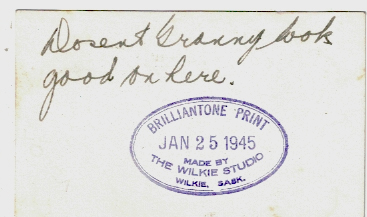 Dosent Granny look
good on here.
BRILLIANTONE PRINT
JAN 25 1945
MADE BY
THE WILKIE STUDIO
WILKIE, SASK.